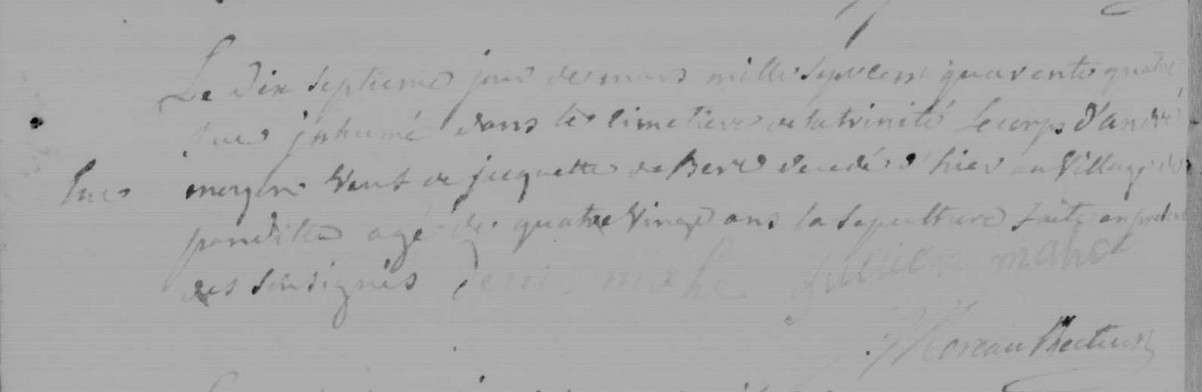 Le dix septieme jour de mars mille sept cent quarente quatre
fut inhumé dans le cimetiere de la trinité le corps d'andré
moyon veuf de jacquette decedé d'hier au village de
lues
agé de quatre vingt ans la sepulture faite en presence
des sousignés julien mahé
Moreau Recteur